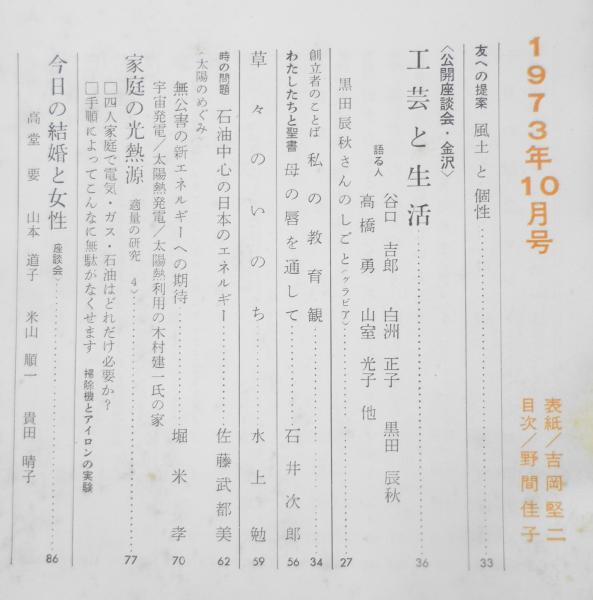 1973年10月号
表紙/吉岡堅二
目次/野間佳子
友への提案 風土と個性 33
〈公開座談会・金沢〉
工芸と生活 36
語る人 谷口吉郎 白洲正子 黒田辰秋
高橋勇 山室光子 他
黒田辰秋さんのしごと〈グラビア〉 27
創立者のことば 私の教育観 34
わたしたちと聖書 母の唇を通して 石井次郎 56
草々のいのち 水上勉 59
時の問題 石油中心の日本のエネルギー 佐藤武都美 62
〈太陽のめぐみ〉
無公害の新エネルギーへの期待 堀米孝 70
宇宙発電/太陽熱発電/太陽熱利用の木村建一氏の家
家庭の光熱源 適量の研究 4〉 77
□四人家庭で電気・ガス・石油はどれだけ必要か?
□手順によってこんなに無駄がなくせます 掃除機とアイロンの実験
今日の結婚と女性 座談会〉 86
高堂要 山本道子 米山順一 貴田晴子